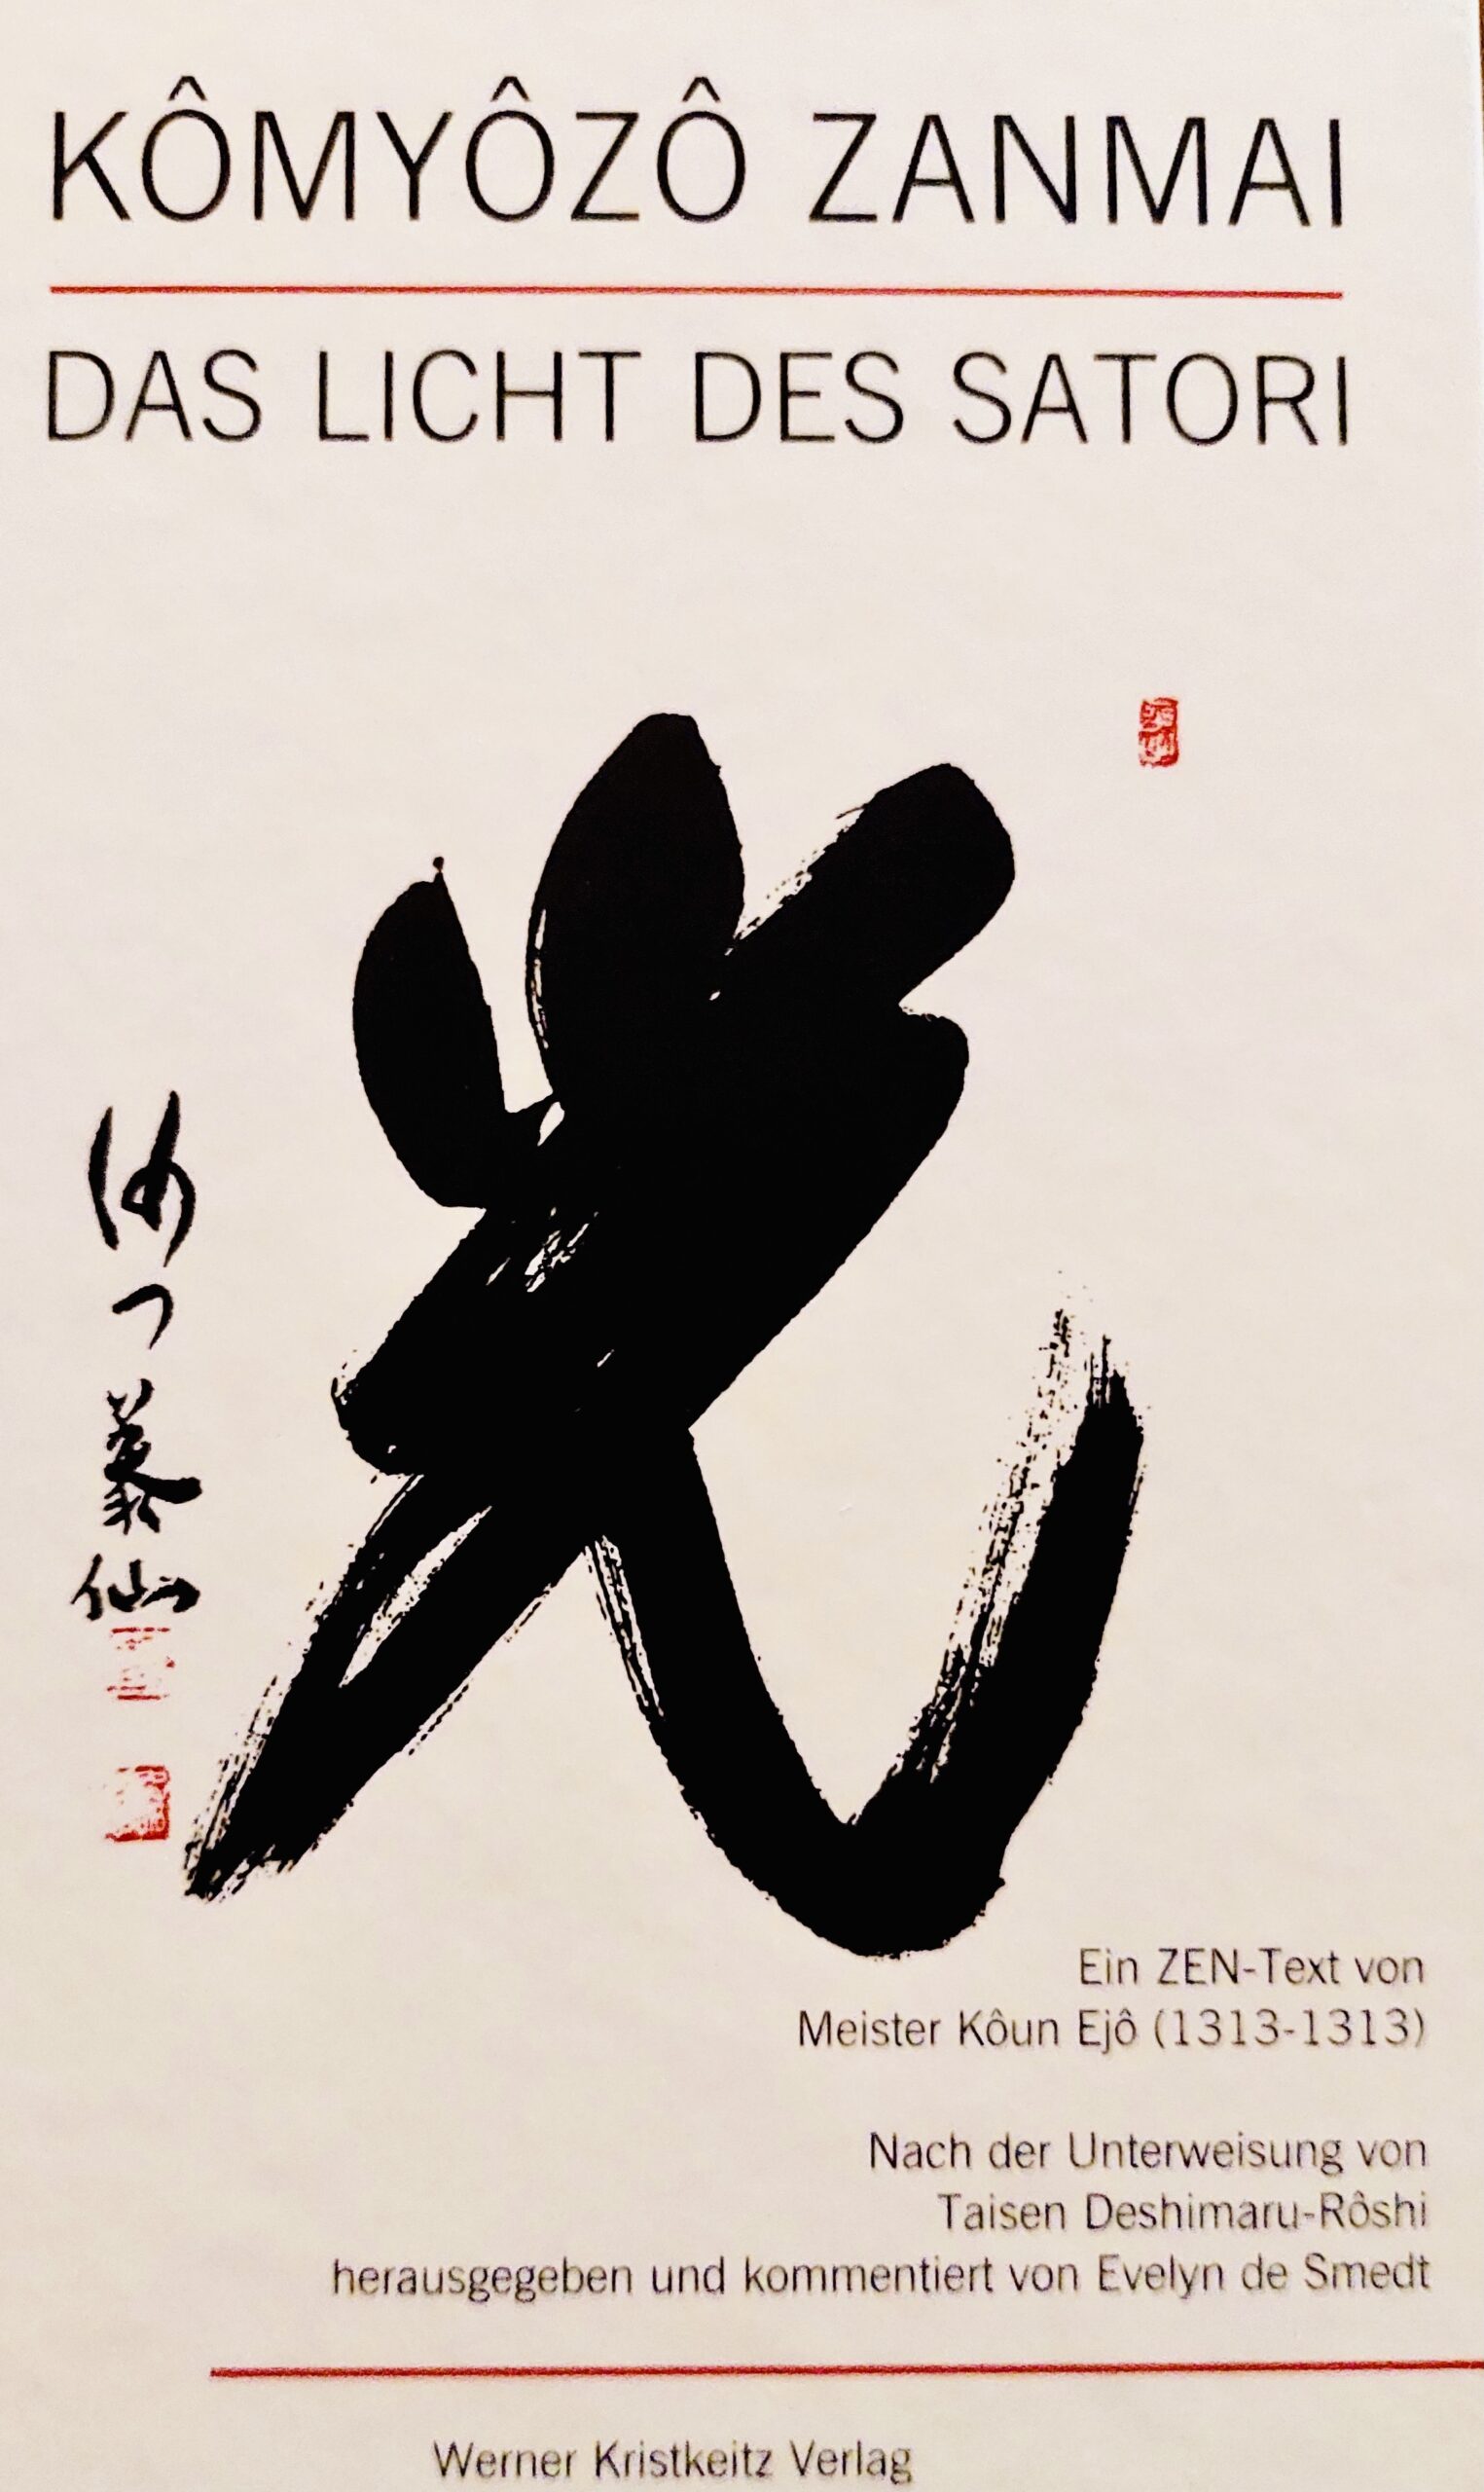 KÔMYÔZÔ ZANMAI
DAS LICHT DES SATORI
光
泰
仙
Ein ZEN-Text von
Meister Kôun Ejô (1313-1313)
Nach der Unterweisung von
Taisen Deshimaru-Rôshi
herausgegeben und kommentiert von Evelyn de Smedt
Werner Kristkeitz Verlag